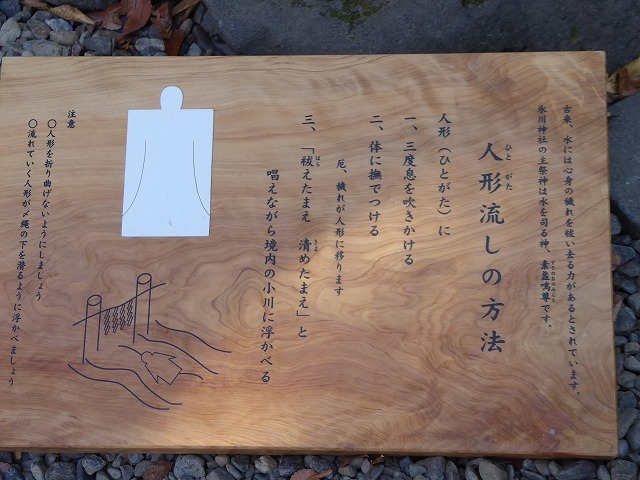 古来、水には心身の穢れを祓い去る力があるとされています。
氷川神社の主祭神は水を司る神、素盞嗚尊です。
すさのおのみこと
人形流しの方法
ひと がた
人形（ひとがた）に
一、三度息を吹きかける
二、体に撫でつける
厄、穢れが人形に移ります
三、「祓えたまえ 清めたまえ」と
はら きよ
唱えながら境内の小川に浮かべる
注意
〇人形を折り曲げないようにしましょう
〇流れていく人形が〆縄の下を潜るように浮かべましょう